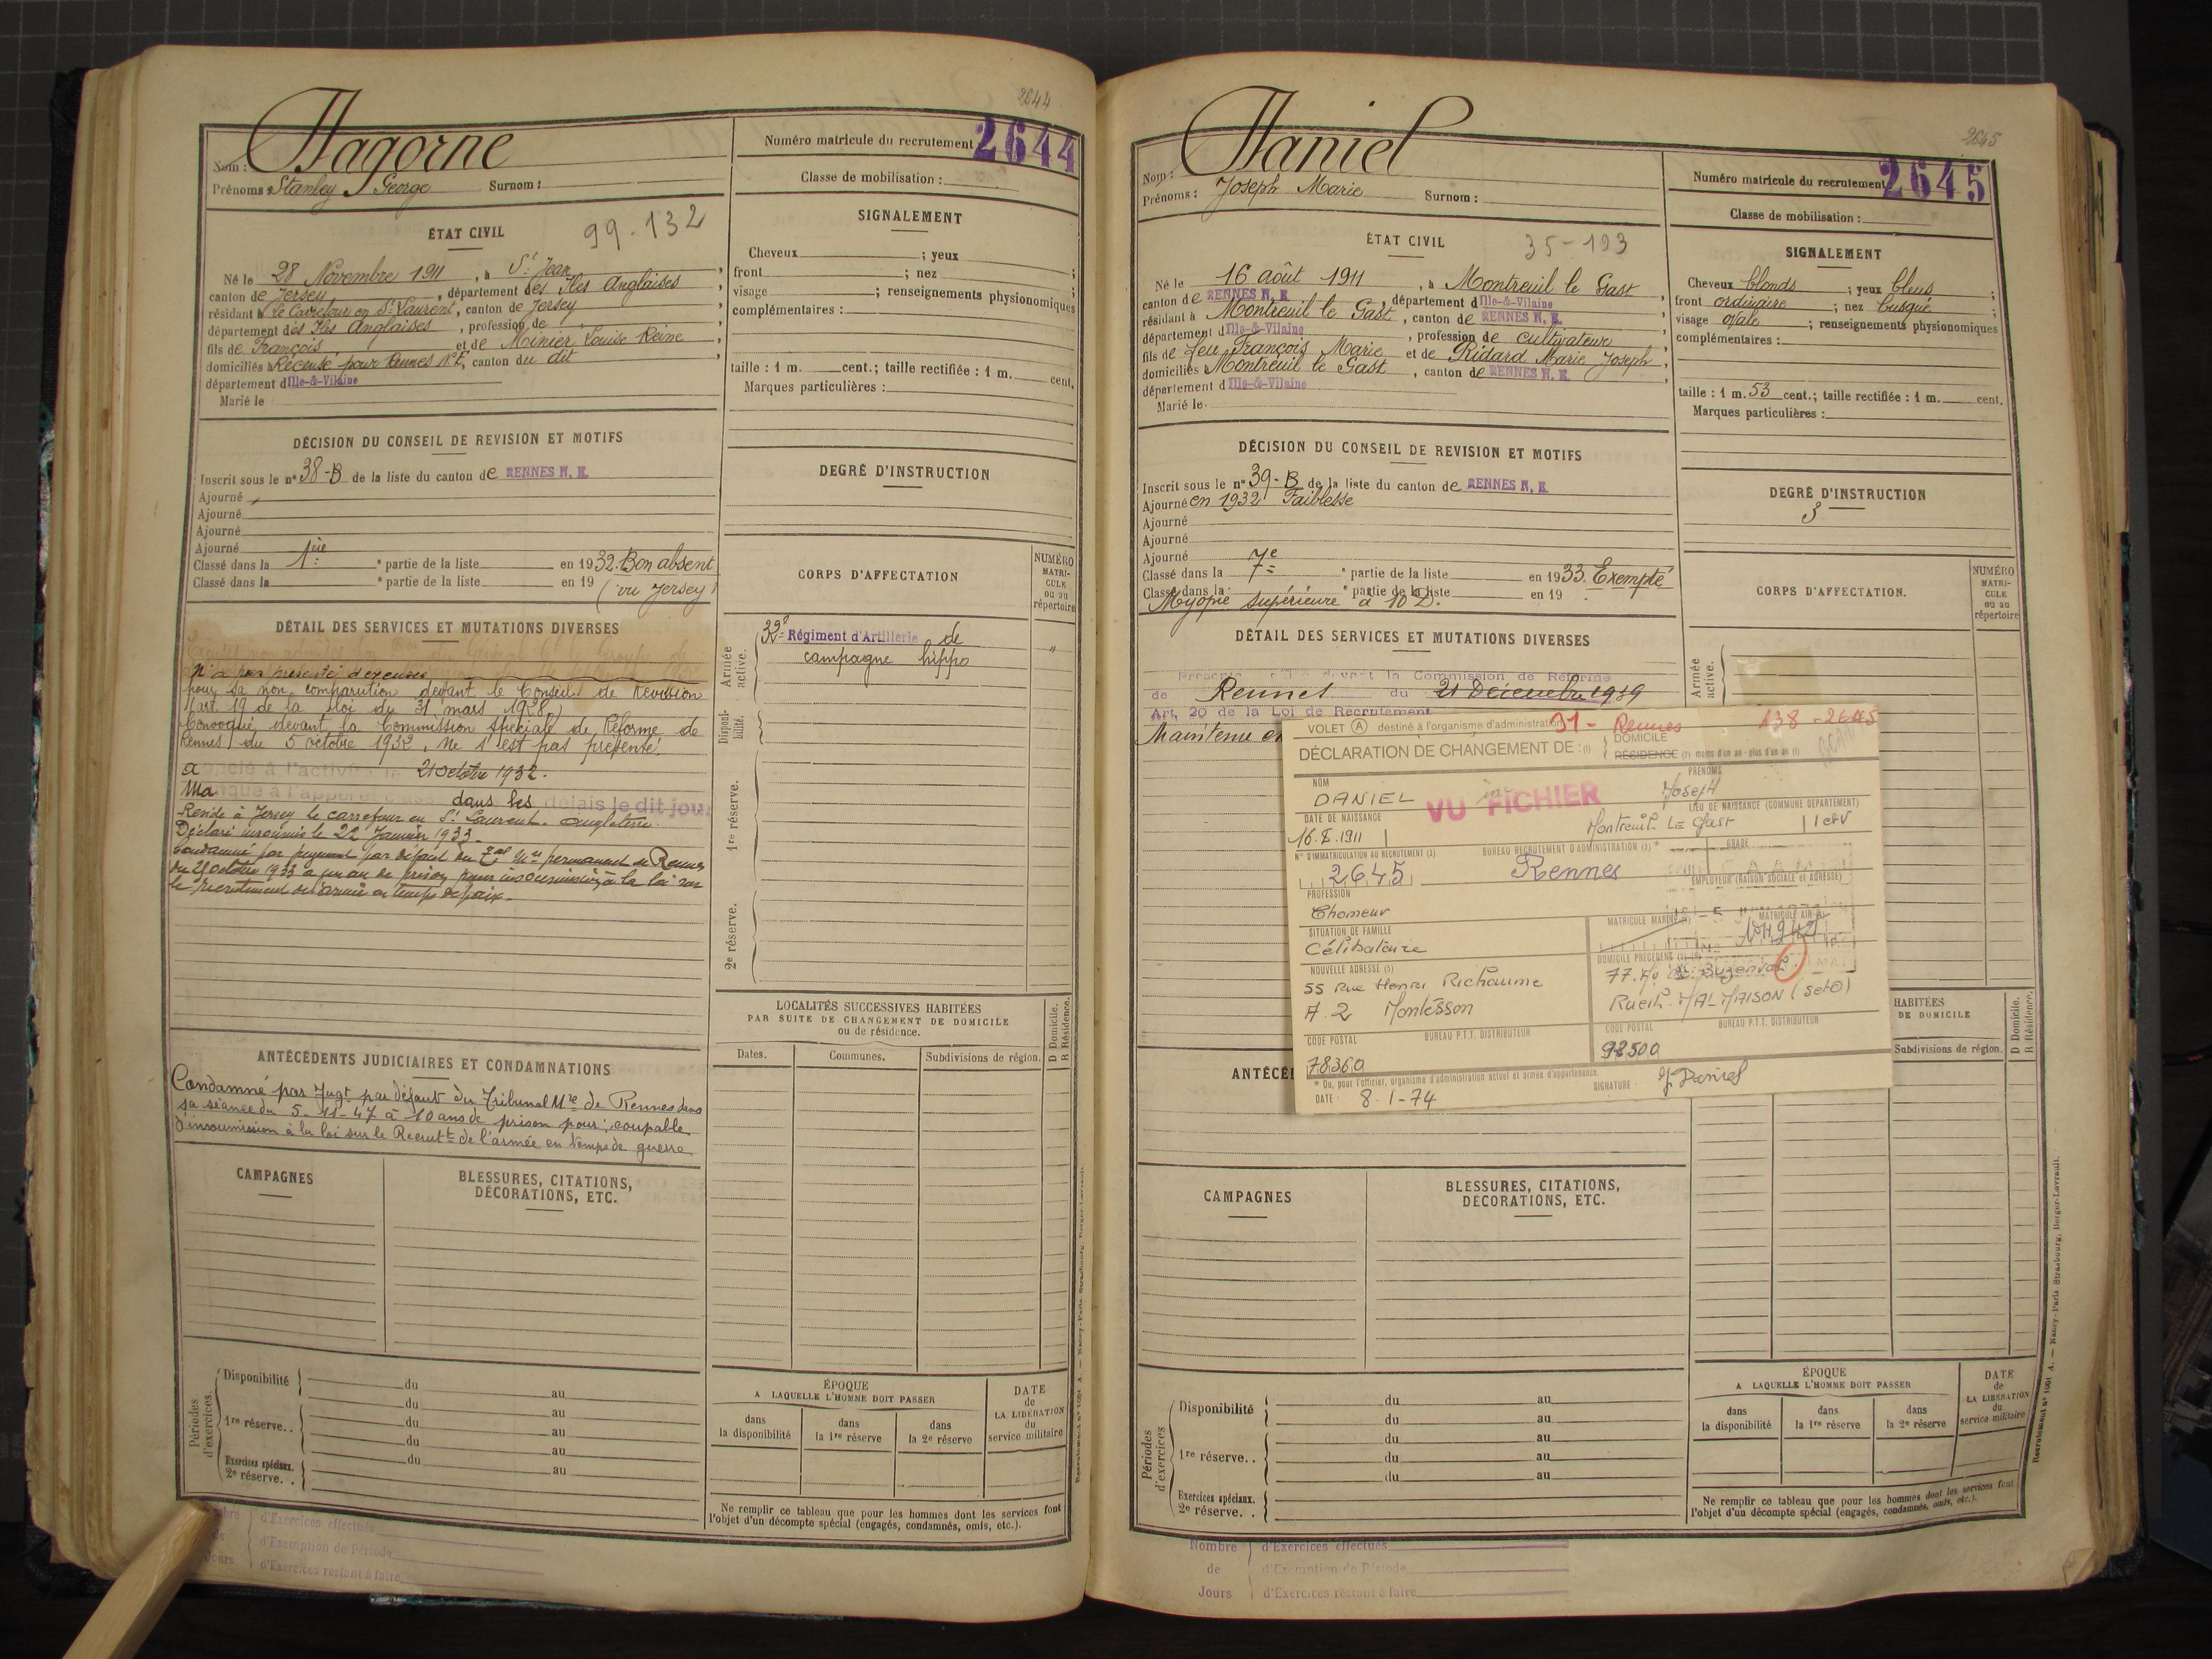 2644
Nom : Dagorne
Prénoms : Stanley George Surnom :
Numéro matricule du recrutement 2644
Classe de mobilisation :
ÉTAT CIVIL 99-132
Né le 28 Novembre 1911, à St Jean,
canton de Jersey, département des Iles Anglaises,
résidant à le Carrefour en St Laurent, canton de Jersey
département des Iles Anglaises, profession de
fils de François et de Minier Louise Reine,
domiciliés à Recensé pour Rennes N.E, canton du dit,
département d Ille-&-Vilaine
Marié le
SIGNALEMENT
Cheveux ; yeux ;
front ; nez ;
visage ; renseignements physionomiques
complémentaires :
taille : 1 m. cent.; taille rectifiée : 1 m. cent.
Marques particulières :
DÉCISION DU CONSEIL DE REVISION ET MOTIFS
Inscrit sous le n° 38-B de la liste du canton de RENNES N. E.
Ajourné
Ajourné
Ajourné
Ajourné
Classé dans la 1ère partie de la liste en 1932. Bon absent
Classé dans la partie de la liste en 19 (vu Jersey)
DEGRÉ D'INSTRUCTION
DÉTAIL DES SERVICES ET MUTATIONS DIVERSES
N'a pas présenté d'excuses
pour sa non comparution devant le Conseil de Révision
(art. 19 de la loi du 31 mars 1928)
Convoqué devant la Commission spéciale de Réforme de
Rennes du 5 octobre 1932, ne s'est pas présenté.
appelé à l'activité le 21 octobre 1932.
Manqué à l'appel dans les délais le dit jour
Réside à Jersey le carrefour en St Laurent. Angleterre.
Déclaré insoumis le 22 Janvier 1933.
Condamné par jugement par défaut du Tal Mre permanent de Rennes
du 21 octobre 1933 à un an de prison pour insoumission à la loi sur
le recrutement de l'armée en temps de paix.
CORPS D'AFFECTATION
NUMÉRO MATRICULE ou au répertoire
Armée active.
33e Régiment d'Artillerie de
campagne hippo "
Disponibilité.
1re réserve.
2e réserve.
LOCALITÉS SUCCESSIVES HABITÉES
PAR SUITE DE CHANGEMENT DE DOMICILE
ou de résidence.
D Domicile.
R Résidence.
Dates. Communes. Subdivisions de région.
ANTÉCÉDENTS JUDICIAIRES ET CONDAMNATIONS
Condamné par Jugt par défaut du Tribunal Mre de Rennes dans
sa séance du 5-11-47 à 10 ans de prison pour : coupable
d'insoumission à la loi sur le Recrutt de l'armée en temps de guerre
CAMPAGNES
BLESSURES, CITATIONS,
DÉCORATIONS, ETC.
Périodes d'exercices.
Disponibilité du au
du au
1re réserve.. du au
du au
du au
Exercices spéciaux.
2e réserve. .
ÉPOQUE
A LAQUELLE L'HOMME DOIT PASSER
dans la disponibilité
dans la 1re réserve
dans la 2e réserve
DATE de LA LIBÉRATION du service militaire
Ne remplir ce tableau que pour les hommes dont les services font
l'objet d'un décompte spécial (engagés, condamnés, omis, etc.).
Nombre d'Exercices effectués
de d'Exemption de Période
Jours d'Exercices restant à faire
2645
Nom : Daniel
Prénoms : Joseph Marie Surnom :
Numéro matricule du recrutement 2645
Classe de mobilisation :
ÉTAT CIVIL 35-193
Né le 16 août 1911, à Montreuil le Gast,
canton de RENNES N. E., département d Ille-&-Vilaine,
résidant à Montreuil le Gast, canton de RENNES N. E.,
département d Ille-&-Vilaine, profession de cultivateur,
fils de feu François Marie et de Ridard Marie Joseph,
domiciliés à Montreuil le Gast, canton de RENNES N. E.,
département d Ille-&-Vilaine
Marié le
SIGNALEMENT
Cheveux blonds ; yeux bleus ;
front ordinaire ; nez busqué ;
visage ovale ; renseignements physionomiques
complémentaires :
taille : 1 m. 53 cent.; taille rectifiée : 1 m. cent.
Marques particulières :
DÉCISION DU CONSEIL DE REVISION ET MOTIFS
Inscrit sous le n° 39-B de la liste du canton de RENNES N. E.
Ajourné en 1932 Faiblesse
Ajourné
Ajourné
Ajourné
Classé dans la 7e partie de la liste en 1933. Exempté
Classé dans la partie de la liste en 19
Myopie supérieure à 10 D.
DEGRÉ D'INSTRUCTION
3
DÉTAIL DES SERVICES ET MUTATIONS DIVERSES
devant la Commission de Réforme
de Rennes du 21 Décembre 1939
Art. 20 de la Loi de Recrutement
Maintenu
CORPS D'AFFECTATION.
NUMÉRO MATRICULE ou au répertoire
Armée active.
VOLET A destiné à l'organisme d'administration 31 - Rennes 138 - 2645
DÉCLARATION DE CHANGEMENT DE : (1) DOMICILE
RÉSIDENCE (2) moins d'un an - plus d'un an (1)
NOM PRÉNOMS
DANIEL Joseph
VU FICHIER
DATE DE NAISSANCE LIEU DE NAISSANCE (COMMUNE DÉPARTEMENT)
16.8.1911 Montreuil LE Gast I et V
N° D'IMMATRICULATION AU RECRUTEMENT (3) BUREAU RECRUTEMENT D'ADMINISTRATION (3) * GRADE
2645 Rennes
PROFESSION EMPLOYEUR (RAISON SOCIALE et ADRESSE)
Chomeur
SITUATION DE FAMILLE MATRICULE MARINE MATRICULE AIR
Célibataire
NOUVELLE ADRESSE (5) DOMICILE PRÉCÉDENT
55 Rue Henri Richaume 77. Av de Buzenval
A.2 Montesson Rueil-MALMAISON (Set O)
CODE POSTAL BUREAU P.T.T. DISTRIBUTEUR CODE POSTAL BUREAU P.T.T. DISTRIBUTEUR
78360 92500
* Ou, pour l'officier, organisme d'administration actuel et armée d'appartenance.
DATE : 8-1-74 SIGNATURE : J. Daniel
HABITÉES
DE DOMICILE
D Domicile.
R Résidence.
Subdivisions de région.
ANTÉCÉ
CAMPAGNES
BLESSURES, CITATIONS,
DÉCORATIONS, ETC.
Périodes d'exercices
Disponibilité du au
du au
1re réserve. . du au
du au
du au
Exercices spéciaux.
2e réserve. .
ÉPOQUE
A LAQUELLE L'HOMME DOIT PASSER
dans la disponibilité
dans la 1re réserve
dans la 2e réserve
DATE de LA LIBÉRATION du service militaire
Ne remplir ce tableau que pour les hommes dont les services font
l'objet d'un décompte spécial (engagés, condamnés, omis, etc.).
Recrutement n° 1001 A. — Nancy-Paris-Strasbourg, Berger-Levrault.
Nombre d'Exercices effectués
de d'Exemption de Période
Jours d'Exercices restant à faire